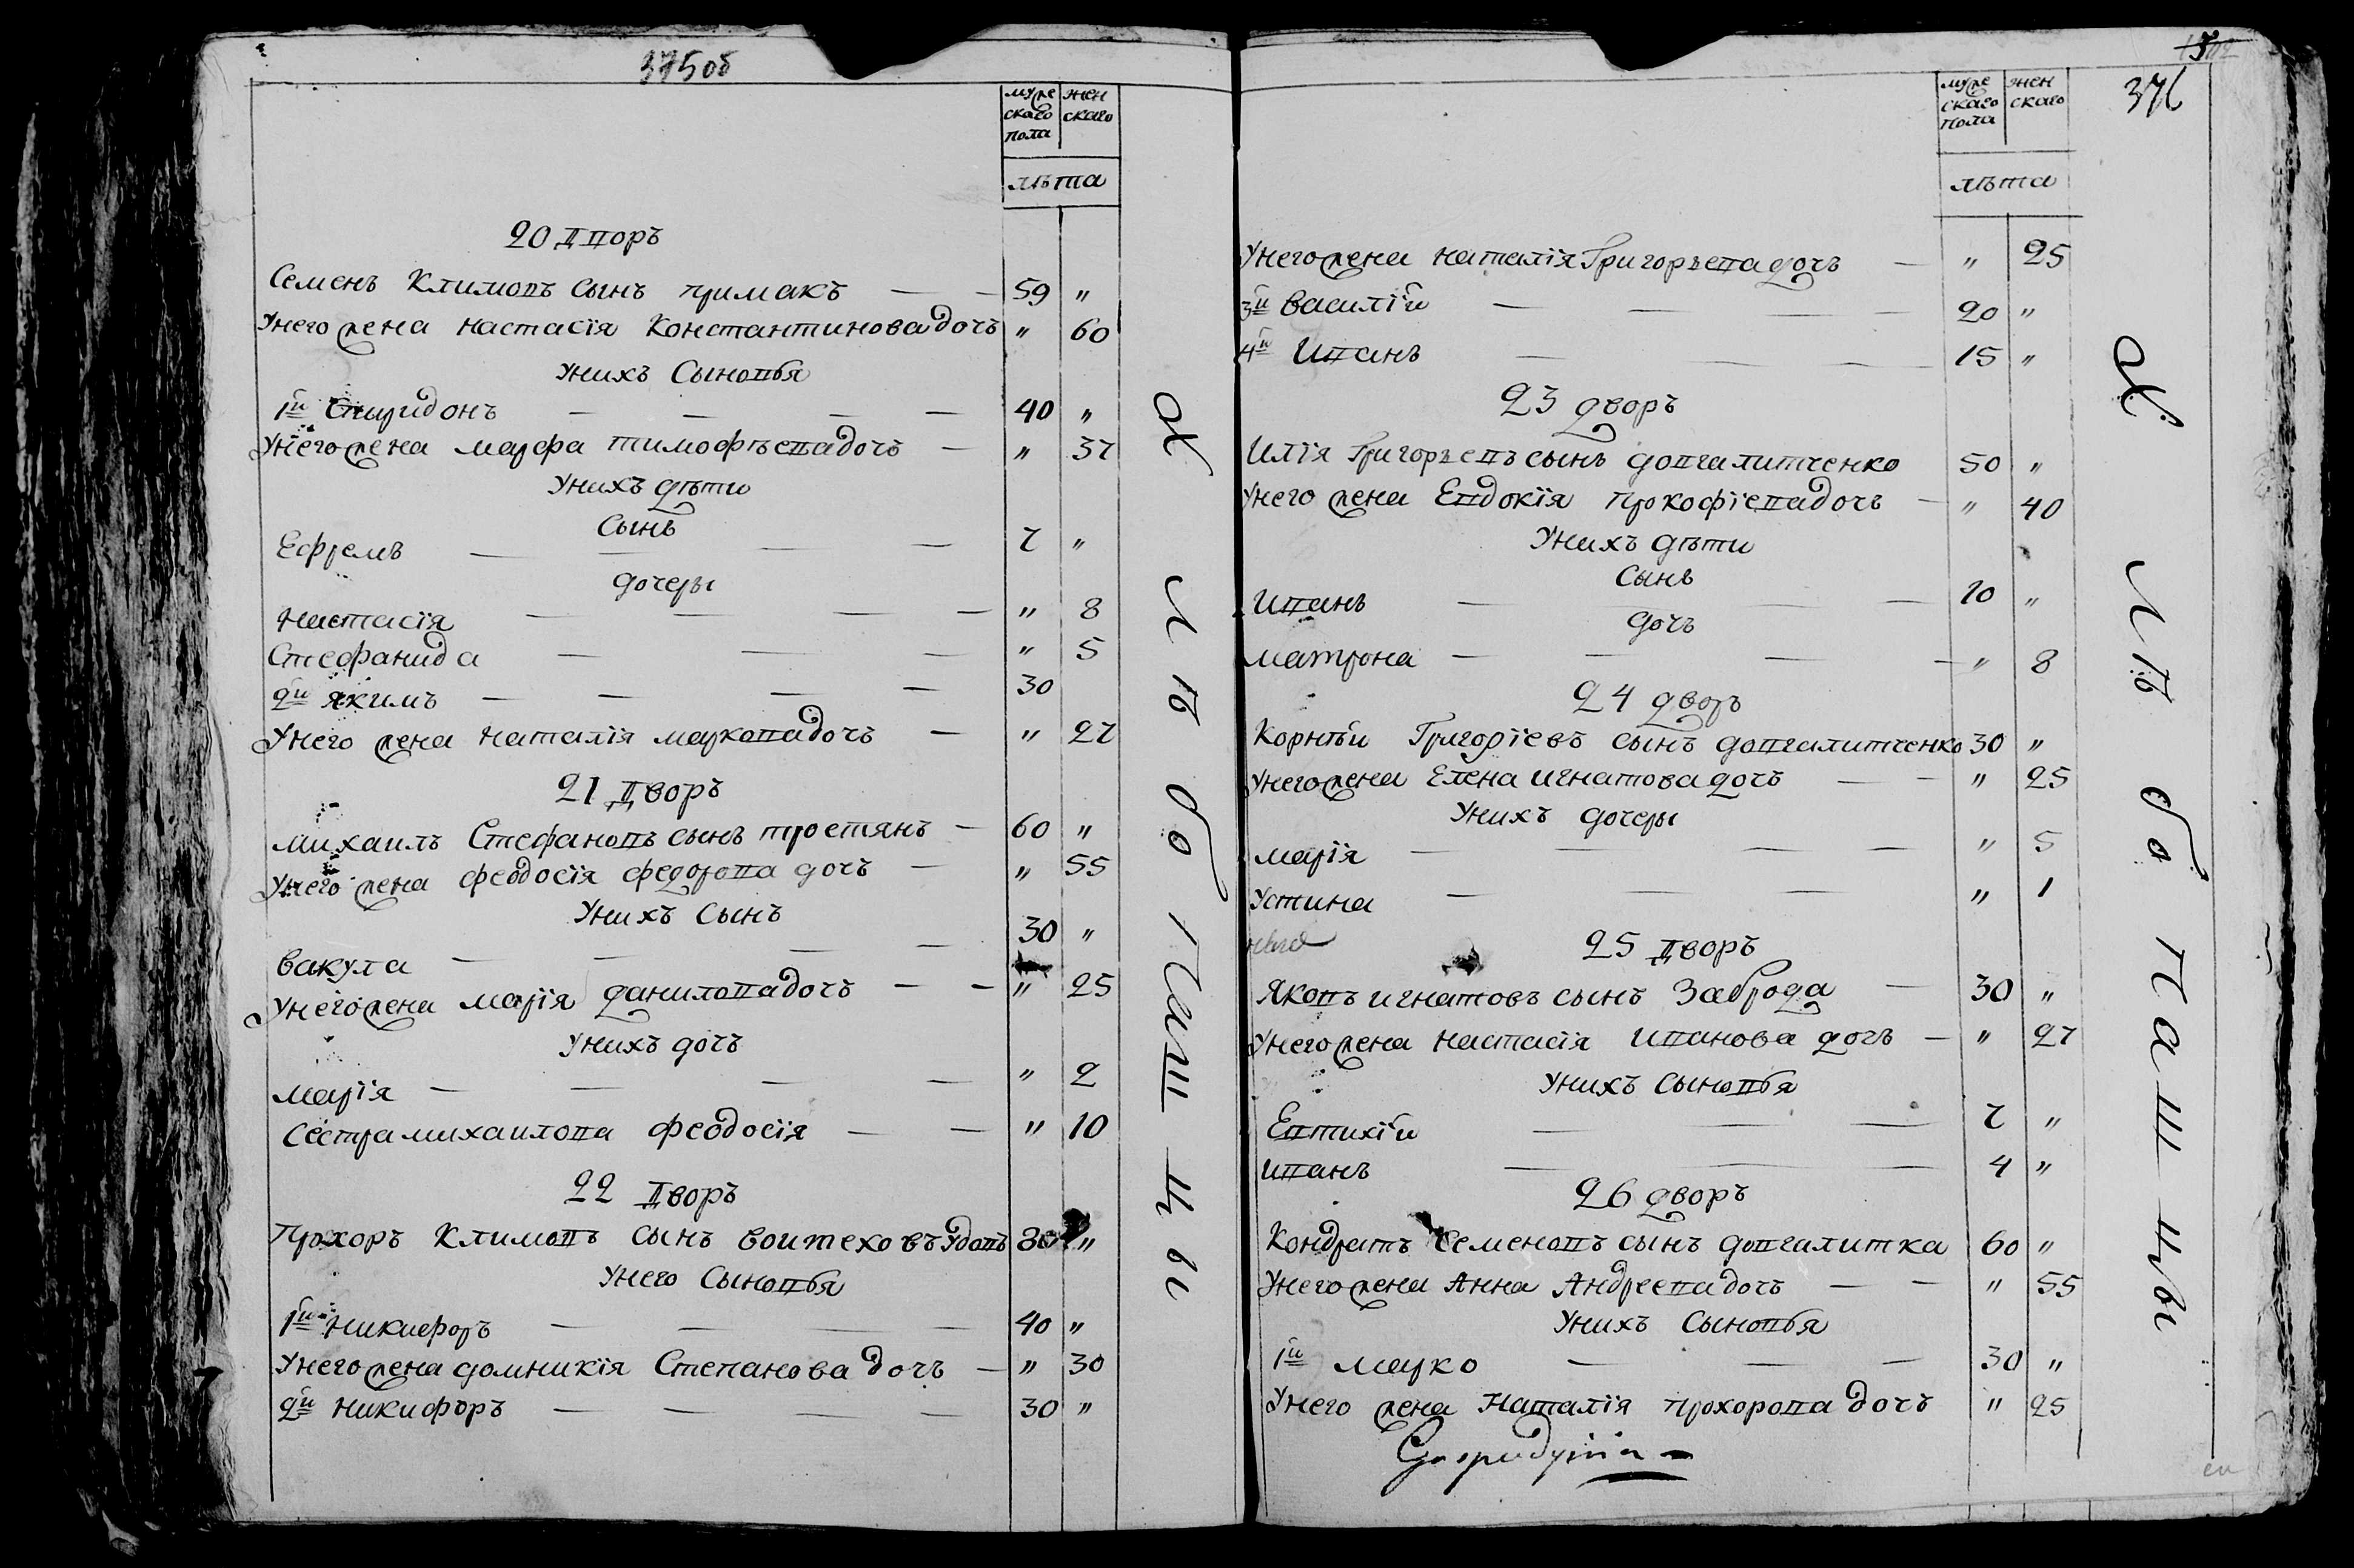 375об
муже
скаго
пола
жен
скаго
лѣта
20 Дворъ
Семенъ Климовъ сынъ примакъ — — 59 "
Унего жена настасія Константинова дочъ " 60
Унихъ Сыновья
1й Спиридонъ — — — — 40 "
Унего жена марфа тимофѣева дочъ — " 37
Унихъ дѣти
Сынъ
Ефремъ — — — — 7 "
дочеры
настасія — — — — " 8
Стефанида — — — " 5
2й якимъ — — — — 30
Унего жена наталія маркова дочъ — " 27
21 Дворъ
михаилъ Стефановъ сынъ тростянъ — 60 "
Унего жена феодосія федорова дочъ — " 55
Унихъ Сынъ
вакула — — — — 30 "
Унего жена марія данилова дочъ — — " 25
Унихъ дочъ
марія — — — — " 2
Сестра михаилова феодосія — — " 10
22 Дворъ
Прохоръ Климовъ сынъ воитеховъ Удовъ 80 "
Унего Сыновья
1й никифоръ — — — — 40 "
Унего жена домникія Степанова дочъ — " 30
2й никифоръ — — — — 30 "
Х Л Ѣ б П а ш ц ы
376
муже
скаго
пола
жен
скаго
лѣта
Унего жена наталія Григорьева дочъ — " 25
3й василій — — — 20 "
4й Иванъ — — — 15 "
23 дворъ
Илія Григорьевъ сынъ довгалитченко 50 "
Унего жена Евдокія прокофіева дочъ — " 40
Унихъ дѣти
Сынъ
Иванъ — — — 10 "
дочъ
матрона — — — — " 8
24 дворъ
Корнѣи Григоріевъ сынъ довгалитченко 30 "
Унего жена Елена игнатова дочъ — — " 25
Унихъ дочеры
марія — — — — " 5
Устина — — — " 1
25 Дворъ
Яковъ игнатовъ сынъ Заброда — 30 "
Унего жена настасія иванова дочъ — " 27
Унихъ Сыновья
Евтихій — — — 7 "
иванъ — — — 4 "
26 дворъ
Кондратъ Семеновъ сынъ довгалитка 60 "
Унего жена Анна Андреева дочъ — — " 55
Унихъ Сыновья
1й марко — — — 30 "
Унего жена Наталія прохорова дочъ " 25
Х Л Ѣ б П а ш ц ы